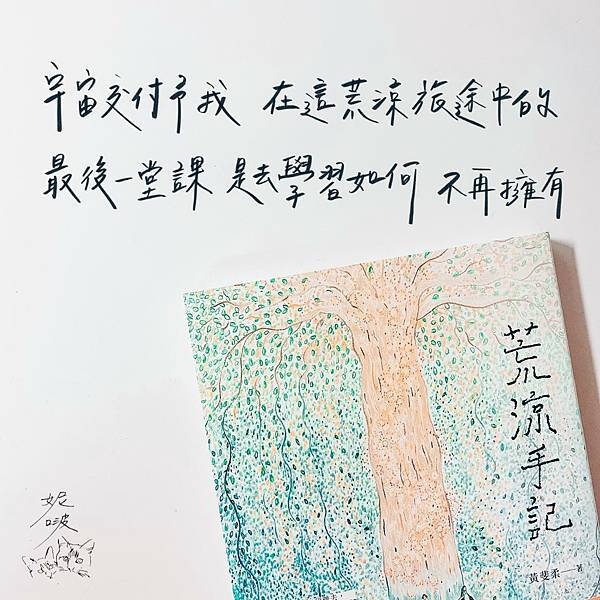 宇宙交付予我 在這荒涼旅途中的
最後一堂課 是去學習如何 不再擁有
荒涼手記
黃斐柔—著
妮
啵